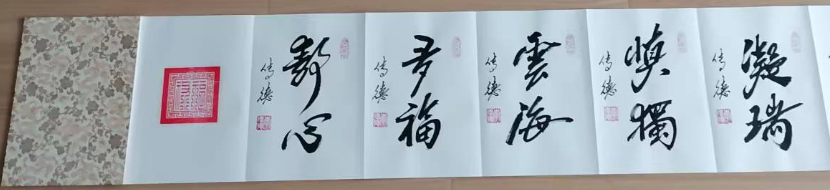 凝瑞
传德
慎獨
传德
雲海
传德
多福
传德
心
传德